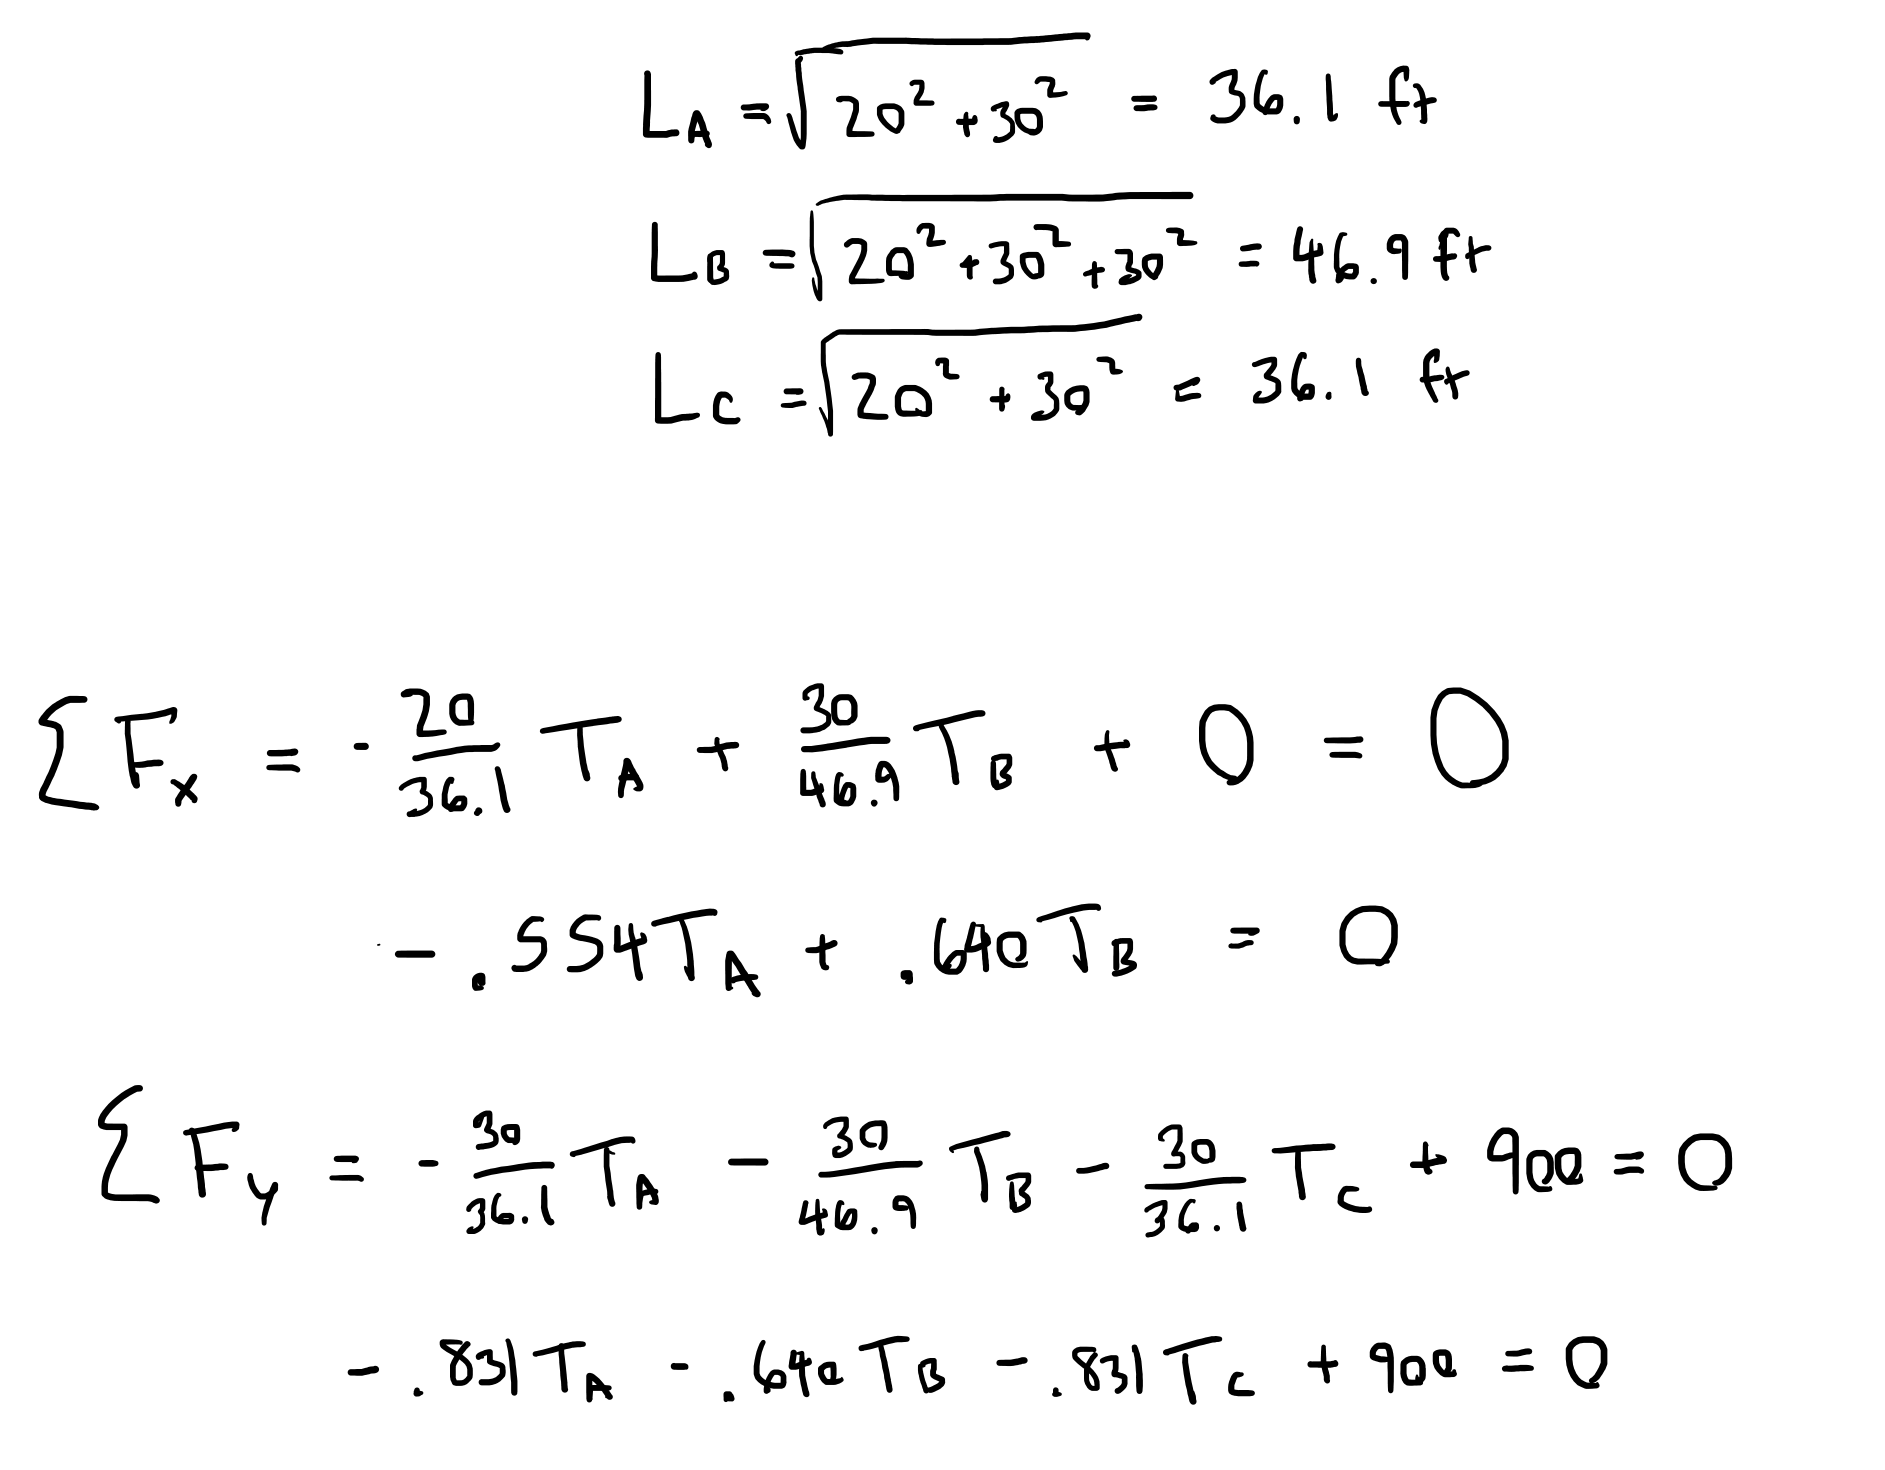 L_A = √(20² + 30²) = 36.1 ft
L_B = √(20² + 30² + 30²) = 46.9 ft
L_C = √(20² + 30²) = 36.1 ft
ΣF_x = - 20/36.1 T_A + 30/46.9 T_B + 0 = 0
- .554 T_A + .640 T_B = 0
ΣF_y = - 30/36.1 T_A - 30/46.9 T_B - 30/36.1 T_C + 900 = 0
- .831 T_A - .640 T_B - .831 T_C + 900 = 0